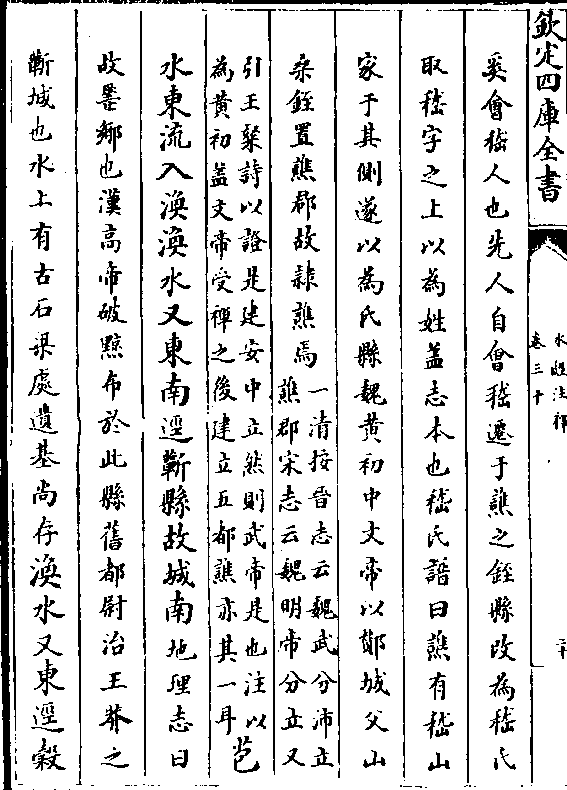 欽定四庫全書
水經注釋
卷三十
奚會稽人也先人自會稽遷于譙之銍縣改為嵇氏
取嵇字之上以為姓葢志本也嵇氏譜曰譙有嵇山
家于其側遂以為氏縣魏黄初中文帝以鄼城父山
桑銍置譙郡故隷譙焉
一清按晉志云魏武分沛立
譙郡宋志云魏明帝分立又
引王粲詩以證是建安中立然則武帝是也注以
為黄初葢文帝受禪之後建立五都譙亦其一耳
苞
水東流入渙渙水又東南逕蘄縣故城南地理志曰
故鄉也漢高帝破黥布於此縣舊都尉治王莽之
蘄城也水上有古石梁處遺基尚存渙水又東逕穀